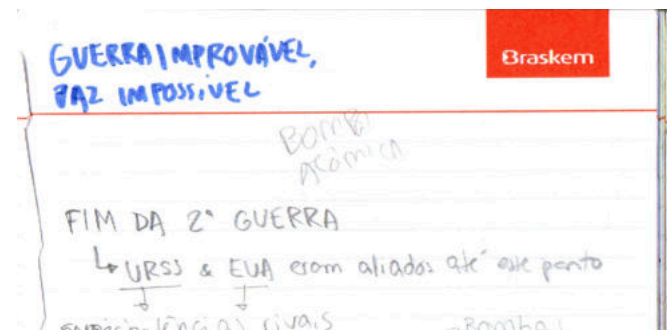 GUERRA IMPROVÁVEL,
PAZ IMPOSSIVEL
Braskem
BOMBA
ATÔMICA
FIM DA 2ª GUERRA
↳ URSS & EUA eram aliados até este ponto
rivais
-Bomba